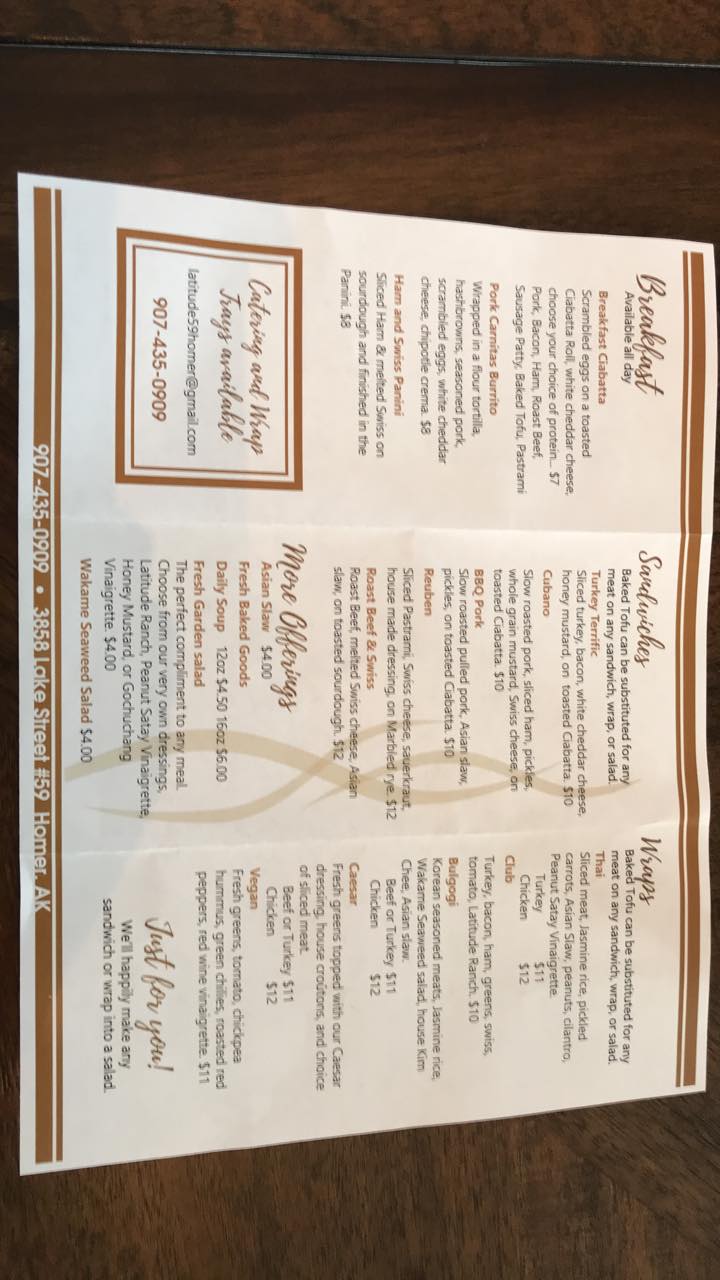 Breakfast
Available all day
Breakfast Ciabatta
Scrambled eggs on a toasted
Ciabatta Roll, white cheddar cheese,
choose your choice of protein... $7
Pork, Bacon, Ham, Roast Beef,
Sausage Patty, Baked Tofu, Pastrami
Pork Carnitas Burrito
Wrapped in a flour tortilla,
hashbrowns, seasoned pork,
scrambled eggs, white cheddar
cheese, chipotle crema. $8
Ham and Swiss Panini
Sliced Ham & melted Swiss on
sourdough and finished in the
Panini. $8
Catering and Wrap
Trays available
latitude59homer@gmail.com
907-435-0909
Sandwiches
Baked Tofu can be substituted for any
meat on any sandwich, wrap, or salad.
Turkey Terrific
Sliced turkey, bacon, white cheddar cheese,
honey mustard, on toasted Ciabatta. $10
Cubano
Slow roasted pork, sliced ham, pickles,
whole grain mustard, Swiss cheese, on
toasted Ciabatta. $10
BBQ Pork
Slow roasted pulled pork, Asian slaw,
pickles, on toasted Ciabatta. $10
Reuben
Sliced Pastrami, Swiss cheese, sauerkraut,
house made dressing, on Marbled rye. $12
Roast Beef & Swiss
Roast Beef, melted Swiss cheese, Asian
slaw, on toasted sourdough. $12
More Offerings
Asian Slaw $4.00
Fresh Baked Goods
Daily Soup 12oz $4.50 16oz $6.00
Fresh Garden salad
The perfect compliment to any meal.
Choose from our very own dressings,
Latitude Ranch, Peanut Satay Vinaigrette,
Honey Mustard, or Gochuchang
Vinaigrette $4.00
Wakame Seaweed Salad $4.00
Wraps
Baked Tofu can be substituted for any
meat on any sandwich, wrap, or salad.
Thai
Sliced meat, Jasmine rice, pickled
carrots, Asian Slaw, peanuts, cilantro,
Peanut Satay Vinaigrette.
Turkey $11
Chicken $12
Club
Turkey, bacon, ham, greens, swiss,
tomato, Latitude Ranch. $10
Bulgogi
Korean seasoned meats, Jasmine rice,
Wakame Seaweed salad, house Kim
Chee, Asian slaw.
Beef or Turkey $11
Chicken $12
Caesar
Fresh greens topped with our Caesar
dressing, house croûtons, and choice
of sliced meat.
Beef or Turkey $11
Chicken $12
Vegan
Fresh greens, tomato, chickpea
hummus, green chilies, roasted red
peppers, red wine vinaigrette. $11
Just for you!
We'll happily make any
sandwich or wrap into a salad.
907-435-0909 • 3858 Lake Street #59 Homer, AK